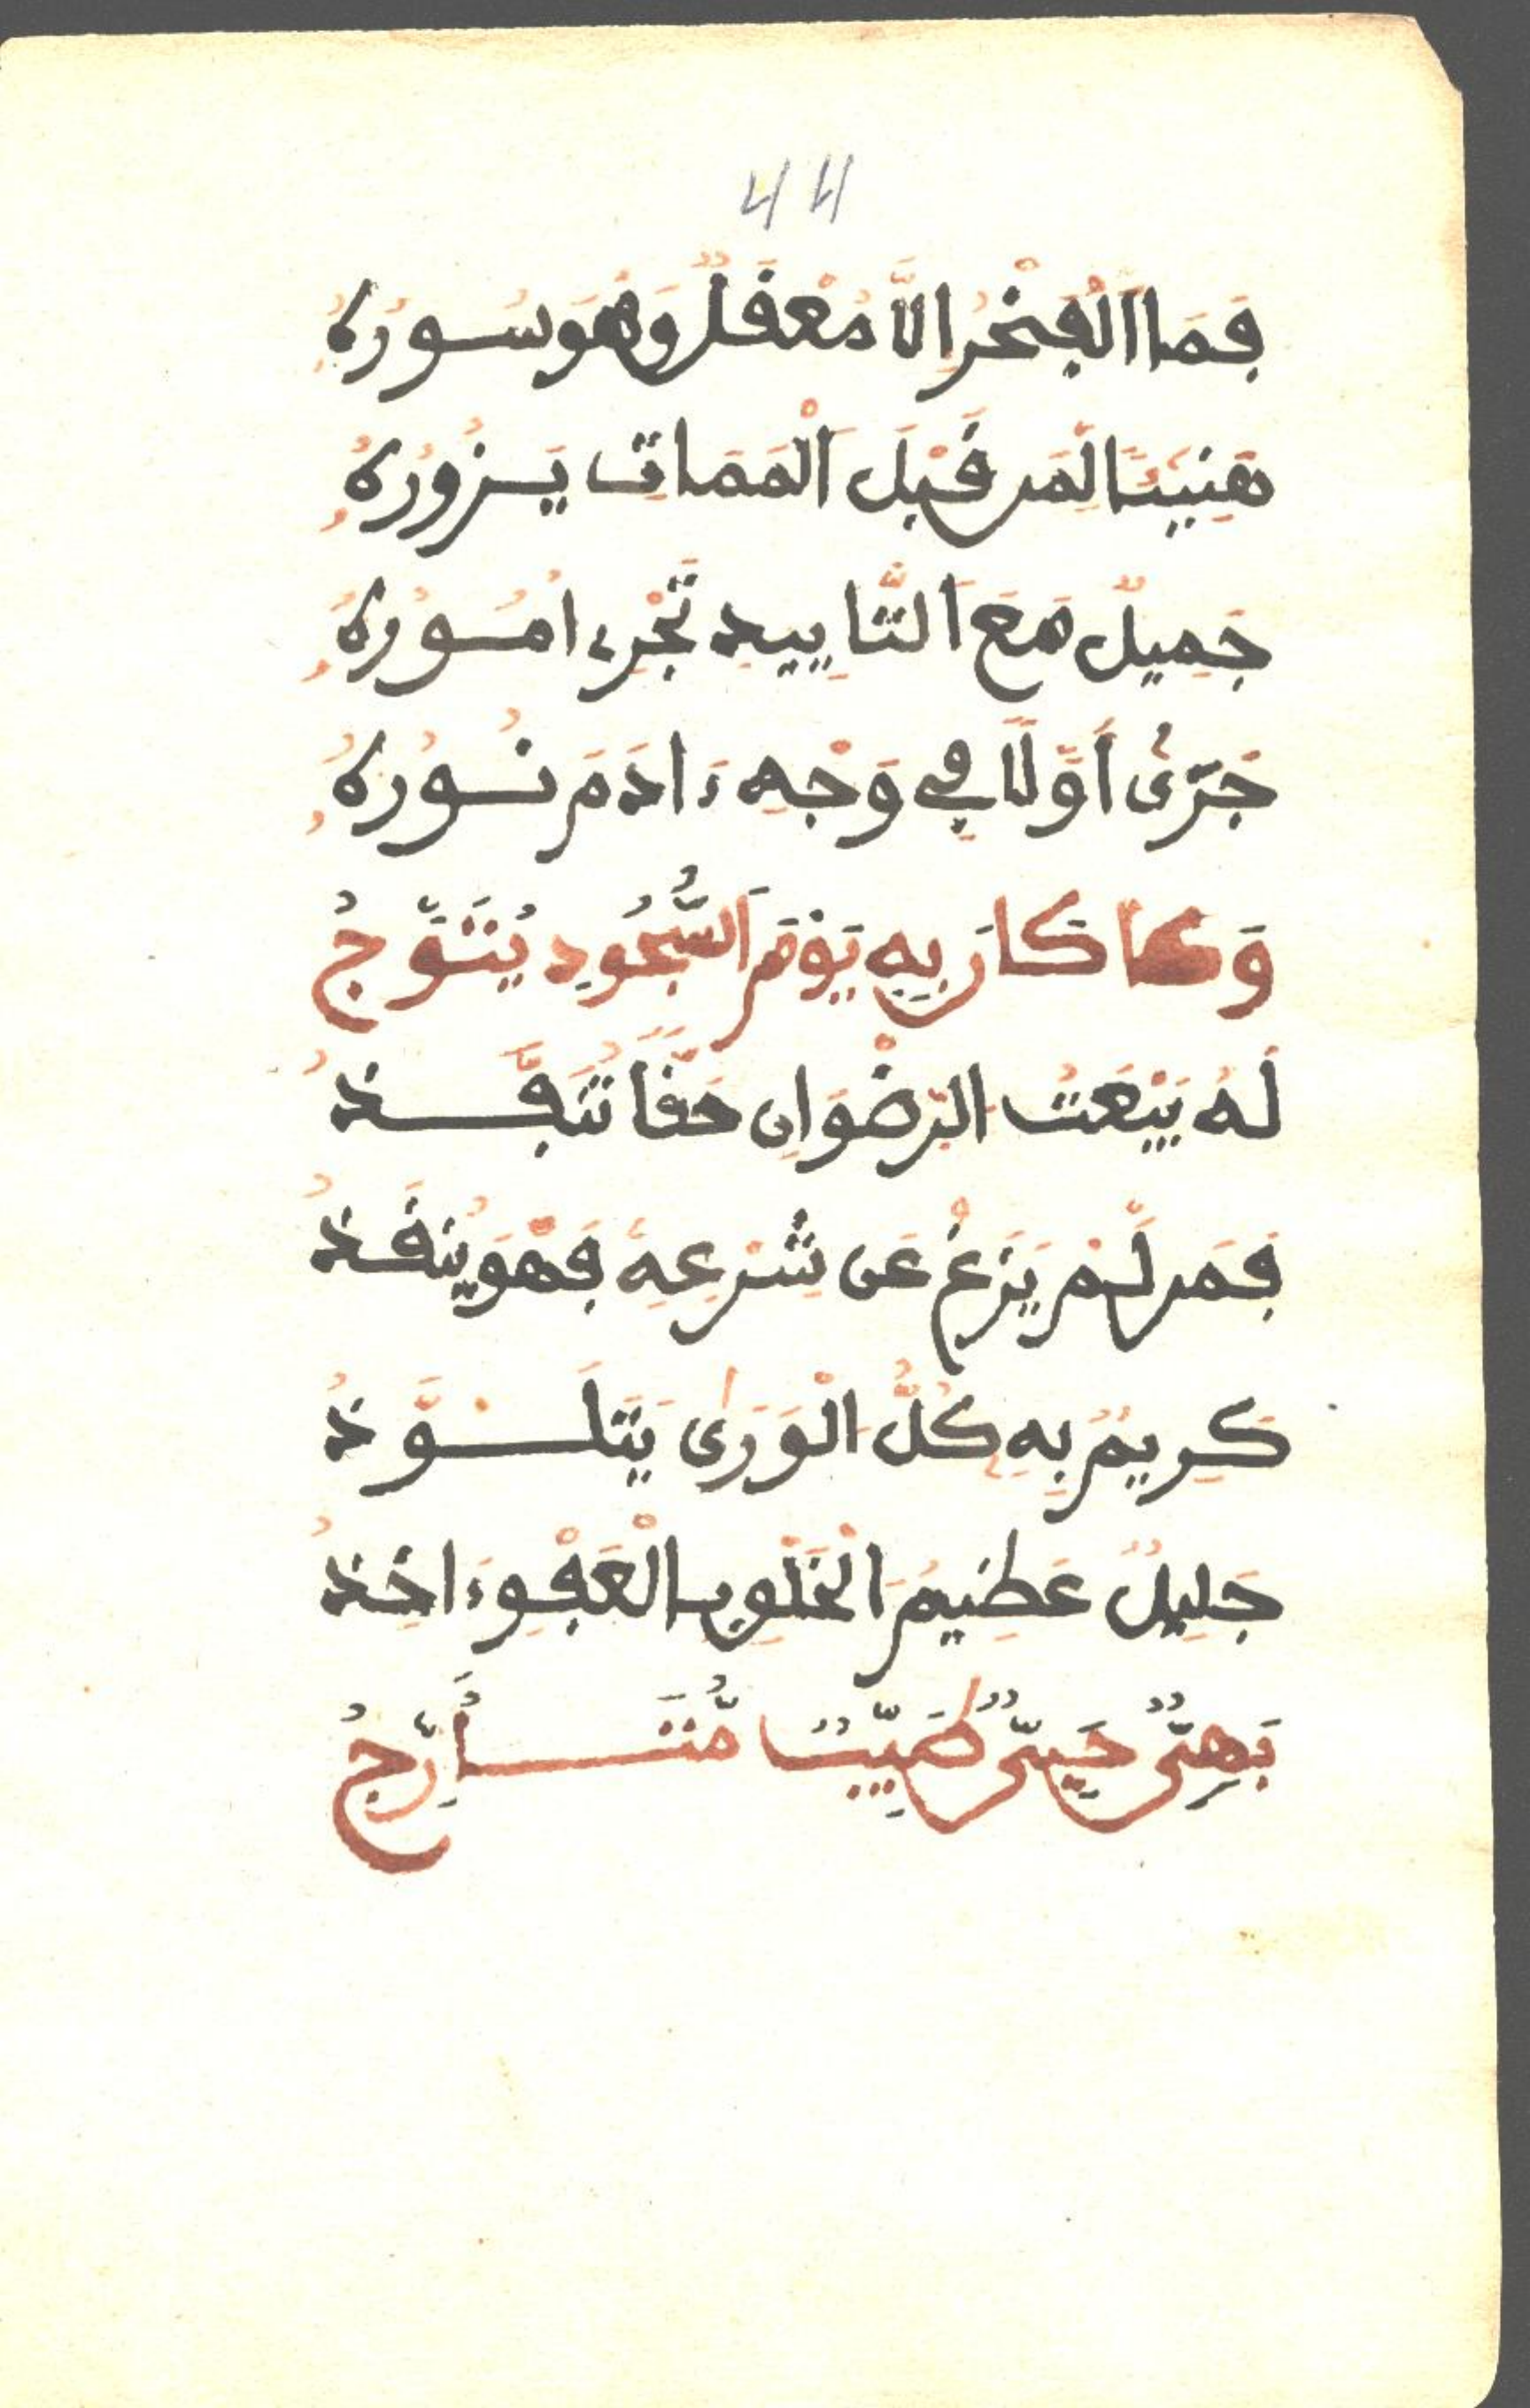 44
فَمَا اَلْفَخْرُ اِلَّا مَعْقَلٌ وَهُوَ سُورُهُ
هَنِيئًا لِمَن قَبْلَ اَلْمَمَاتِ يَزُورُهُ
جَمِيلٌ مَعَ اَلتَّايِيدِ تَجْرِے اُمُورُهُ
جَرَىٰ أَوَّلًا فِے وَجْهِ ءَادَمَ نُورُهُ
وَكَانَ بِهِ يَوْمَ اَلسُّجُودِ يُتَوَّجُ
لَهُ بَيْعَتُ الرِّضْوَانِ حَقًّا تُنَفَّذُ
فَمَن لَمْ يَزِغْ عَن شَرْعِهِ فَهْوَ يُنقَذُ
كَرِيمٌ بِهِ كُلُّ اَلْوَرَىٰ يَتَلَوَّذُ
جَلِيلٌ عَظِيمُ اَلْخَلْقِ بِالْعَفْوِ ءَاخِذُ
بَهِىٌّ حَيِىٌّ طَيِّبٌ مُّتَأَرِّجُ